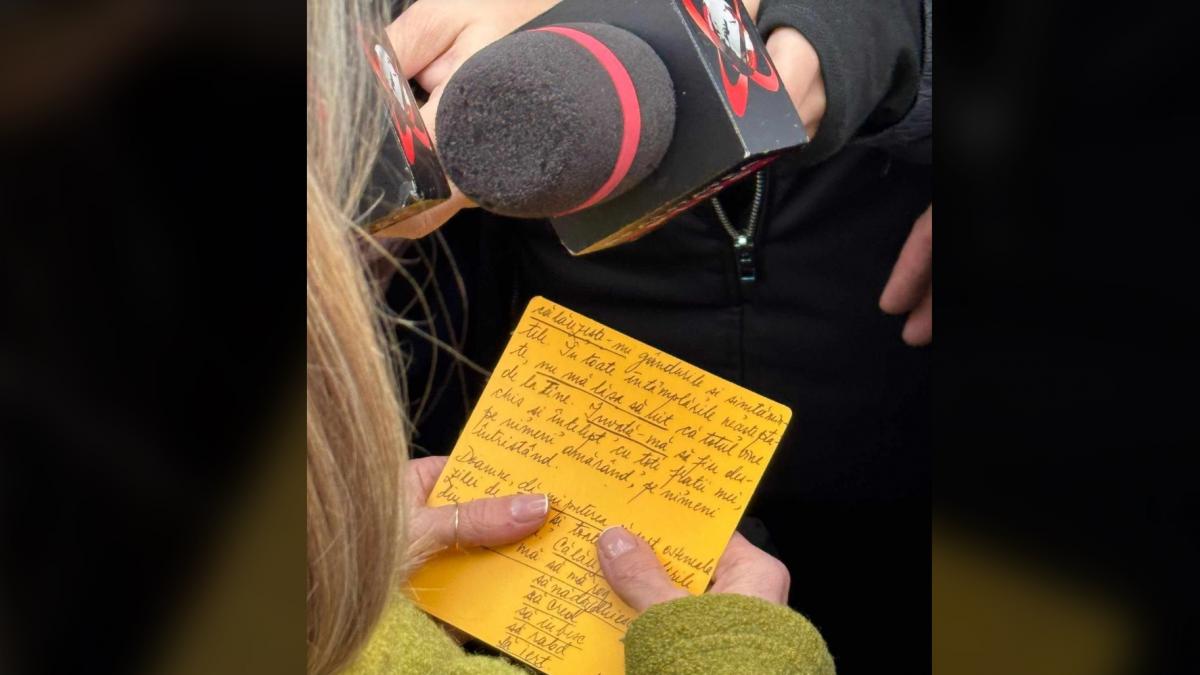 călăuzește-mi gândurile și simțămin-
tele. În toate întâmplările neaștepta-
te, nu mă lăsa să uit că totul vine
de la Tine. Învață-mă să fiu des-
chis și înțelept cu toți frații mei,
pe nimeni amărând, pe nimeni
întristând.
Doamne, dă-mi puterea să port osteneala
zilei de
din și toate
Călăuzește-
mă să mă rog
să nădăjduiesc
să cred
să iubesc
să rabd
să iert.